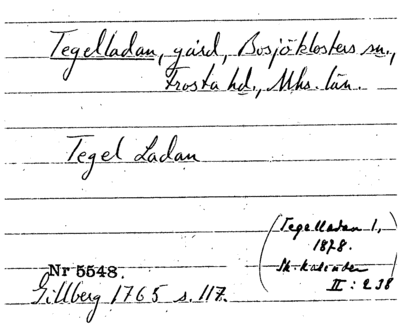 Tegelladan, gård, Bosjöklosters sn.,
Frosta hd., Mhs. län.
Tegel Ladan
(Tegelladan 1,
1878.
Sk. kalender
II: 238
Nr 5548.
Gillberg 1765 s. 117.